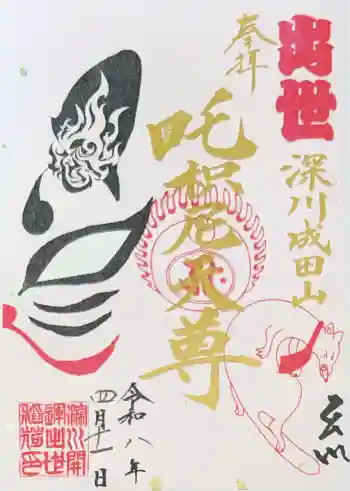 出世
深川成田山
奉拝
吒枳尼天尊
令和八年
四月十一日
深川開
運出世
稲荷印